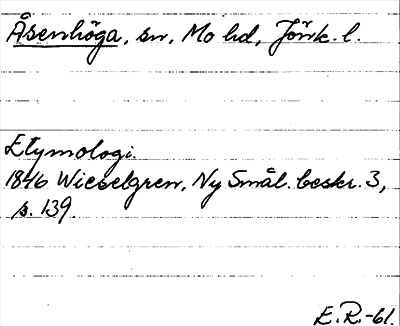 Åsenhöga, sn, Mo hd, Jönk. l.
Etymologi.
1846 Wieselgren, Ny Smål. beskr. 3,
s. 139.
E. R.-61.